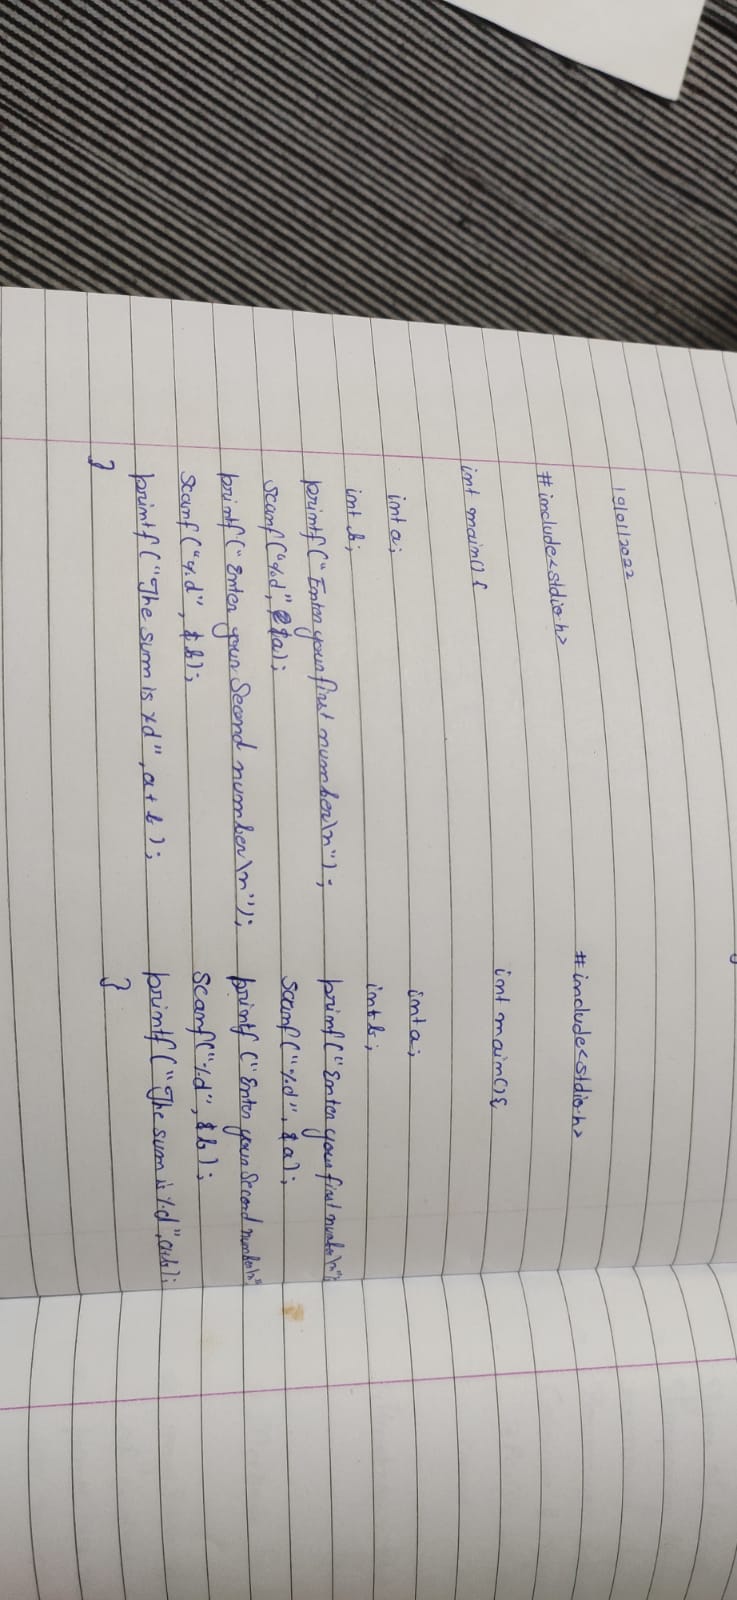 19/01/2022
#include<stdio.h>
int main() {
int a;
int b;
printf("Enter your first number\n");
scanf("%d", &a);
printf("Enter your Second number\n");
scanf("%d", &b);
printf("The sum is %d", a+b);
}
#include<stdio.h>
int main() {
int a;
int b;
printf("Enter your first number\n");
scanf("%d", &a);
printf("Enter your Second number\n"
scanf("%d", &b);
printf("The sum is %d", a+b);
}